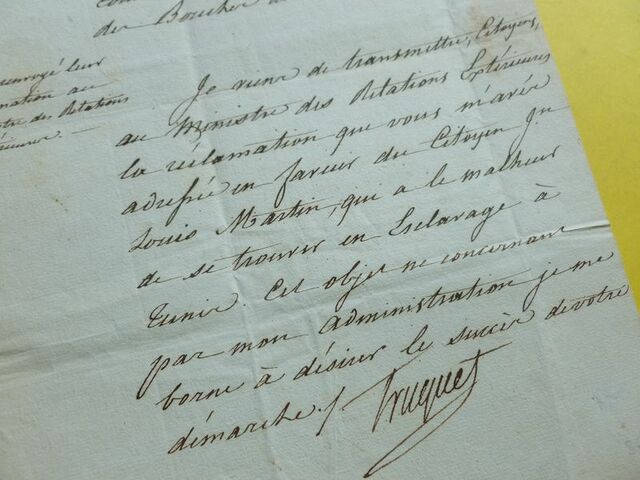 des Bouches
renvoyé leur
mation au
tre des Relations
érieures.
Je viens de transmettre, Citoyens,
au Ministre des Relations Extérieures
la réclamation que vous m'avés
adressée en faveur du Citoyen
Louis Martin, qui a le malheur
de se trouver en Esclavage à
Tunis. Cet objet ne concernant
pas mon administration je me
borne à désirer le succès de votre
démarche. /
Truguet